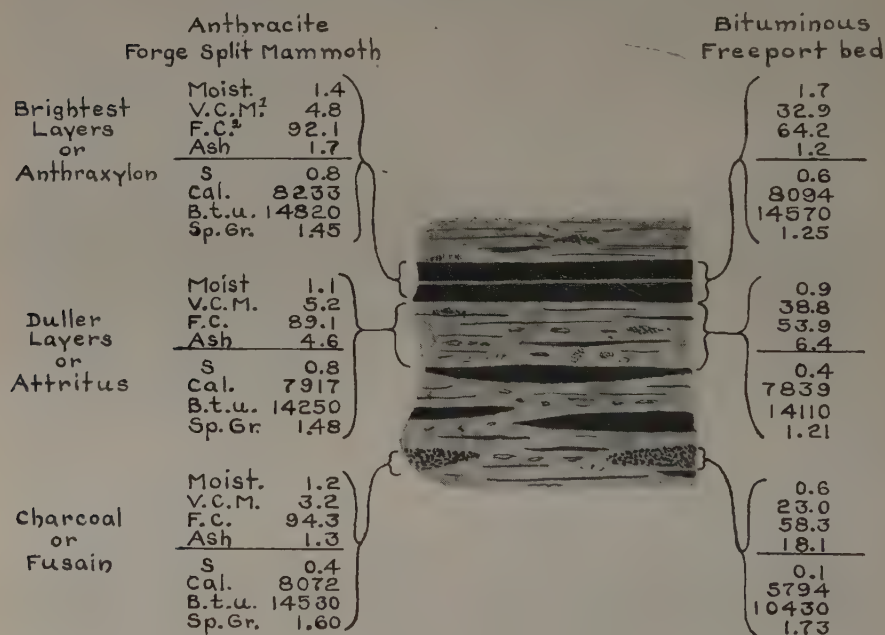 Anthracite
Forge Split Mammoth
Bituminous
Freeport bed
Brightest
Layers
or
Anthraxylon
Moist. 1.4
V.C.M.¹ 4.8
F.C.² 92.1
Ash 1.7
S 0.8
Cal. 8233
B.t.u. 14820
Sp.Gr. 1.45
1.7
32.9
64.2
1.2
0.6
8094
14570
1.25
Duller
Layers
or
Attritus
Moist 1.1
V.C.M. 5.2
F.C. 89.1
Ash 4.6
S 0.8
Cal. 7917
B.t.u. 14250
Sp.Gr. 1.48
0.9
38.8
53.9
6.4
0.4
7839
14110
1.21
Charcoal
or
Fusain
Moist. 1.2
V.C.M. 3.2
F.C. 94.3
Ash 1.3
S 0.4
Cal. 8072
B.t.u. 14530
Sp.Gr. 1.60
0.6
23.0
58.3
18.1
0.1
5794
10430
1.73